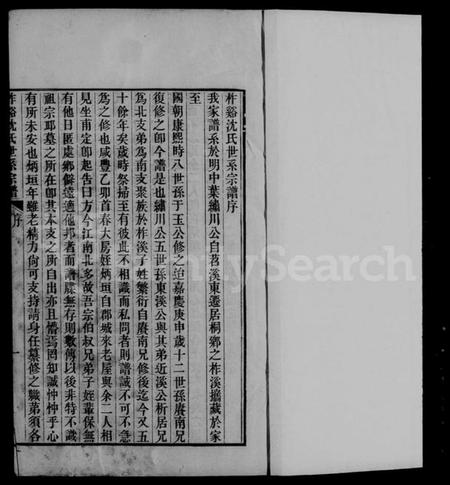 柞谿沈氏世系宗譜序
我家譜系於明中葉繡川公自苕溪東遷居桐鄉之柞溪搢藏於家
至
國朝康熙時八世孫于玉公修之迨嘉慶庚申歲十二世孫賡南兄
復修之卽今譜是也繡川公五世孫東溪公與其弟近溪公析居兄
為北支弟為南支聚族於柞溪子姓繁衍自賡南兄修後迄今又五
十餘年矣歲時祭掃至有彼此不相識而私問者則譜誠不可不急
為之修也咸豐乙卯首春大房姪炳垣自郡城來老屋與余二人相
見坐甫定卽起告曰方今江南北多故吾宗伯叔兄弟子姪輩保無
有他日匿處鄉僻遠適他邦者而譜牒無存則數傳以後非特不識
祖宗邱墓之所在卽其本支之所自出亦且懵焉罔知誠忡忡乎心
有所未安也炳垣年雖老精力尙可支持請身任纂修之職弟須各
柞谿沈氏世系宗譜 序 一
MySearch